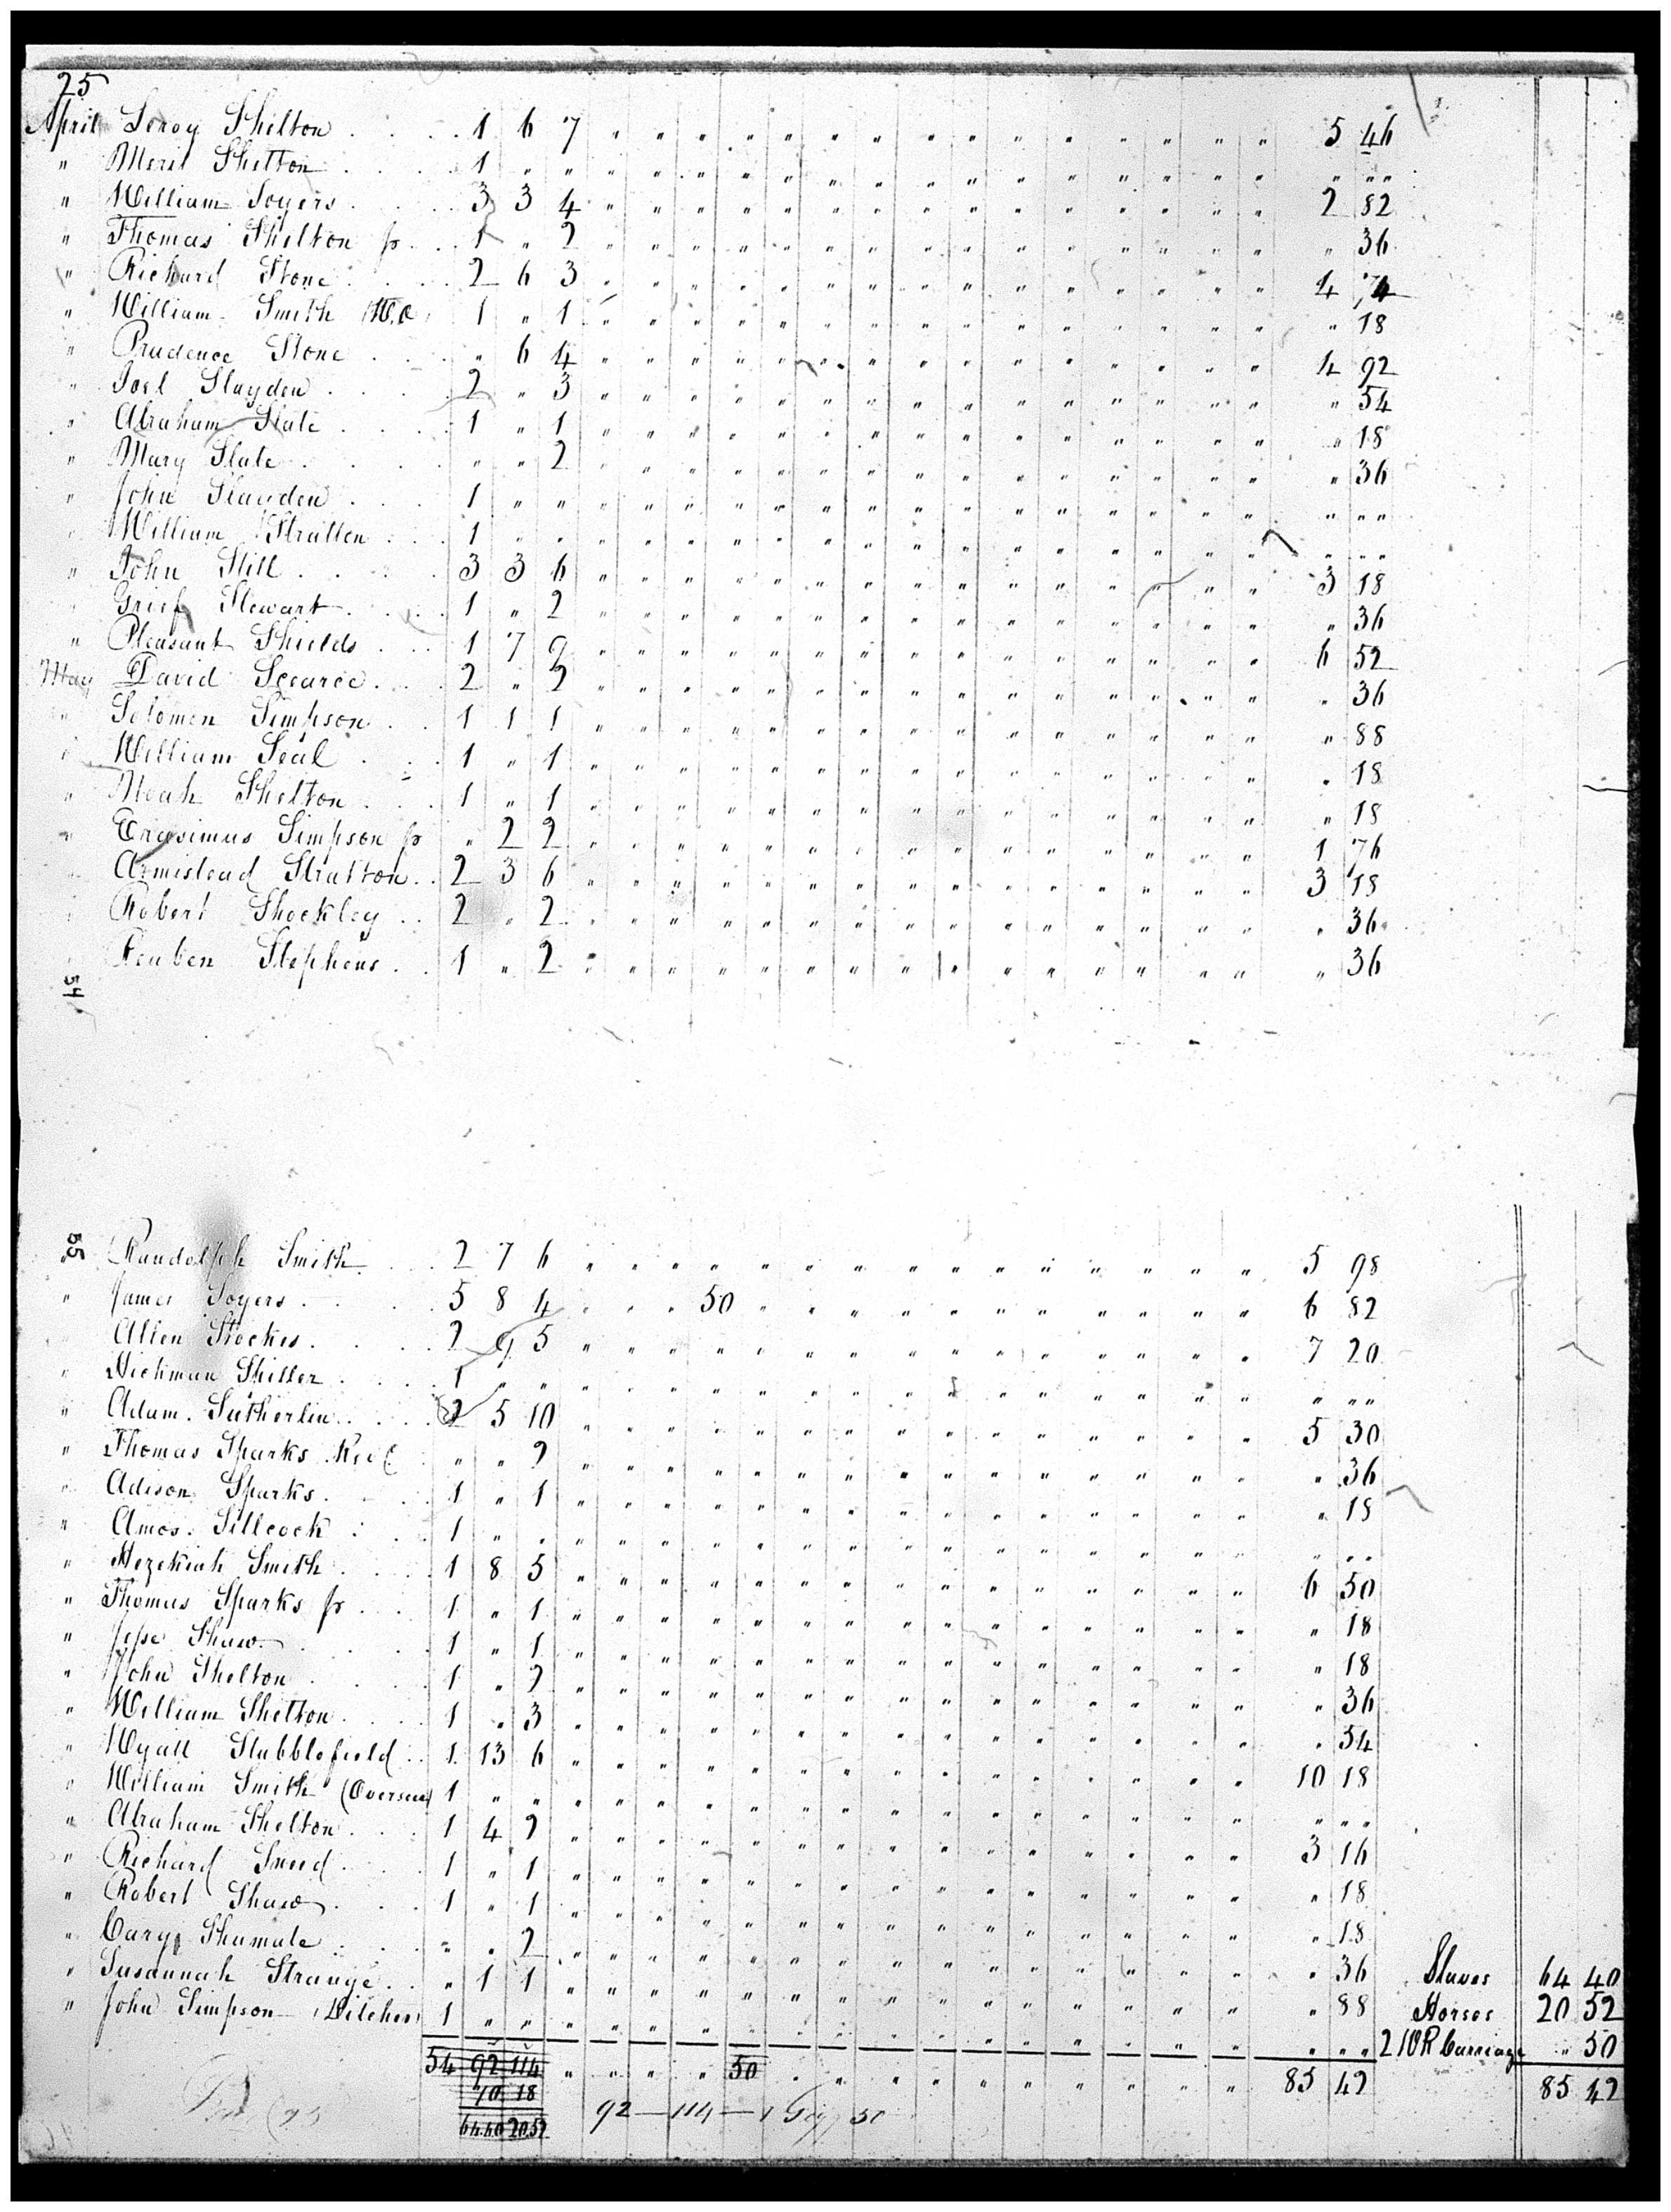 25
April Leroy Shelton . . . . 1 6 7 " " " " " " " " " " " " " " " 5 46
" Meril Shelton . . . . 1 " " " " " " " " " " " " " " " " " " " "
" William Soyers . . . . 3 3 4 " " " " " " " " " " " " " " " 2 82
" Thomas Shelton jr . . 1 " 2 " " " " " " " " " " " " " " " " 36
" Richard Stone . . . . 2 6 3 " " " " " " " " " " " " " " " 4 74
" William Smith (W.O. 1 " 1 " " " " " " " " " " " " " " " " 18
" Prudence Stone . . . " 6 4 " " " " " " " " " " " " " " " 4 92
" Joel Slayden . . . . 2 " 3 " " " " " " " " " " " " " " " " 54
" Abraham Slate . . . . 1 " 1 " " " " " " " " " " " " " " " " 18
" Mary Slate . . . . " " 2 " " " " " " " " " " " " " " " " 36
" John Slayden . . . 1 " " " " " " " " " " " " " " " " " " " "
" William Stratten . . . 1 " " " " " " " " " " " " " " " " " " " "
" John Still . . . . 3 3 6 " " " " " " " " " " " " " " " 3 18
" Grief Stewart . . . 1 " 2 " " " " " " " " " " " " " " " " 36
" Pleasant Shields . . . 1 7 2 " " " " " " " " " " " " " " " 6 52
May David Scearce . . . 2 " 2 " " " " " " " " " " " " " " " " 36
" Solomon Simpson . . 1 1 1 " " " " " " " " " " " " " " " " 88
" William Seal . . . 1 " 1 " " " " " " " " " " " " " " " " 18
" Noah Shelton . . . 1 " 1 " " " " " " " " " " " " " " " " 18
" Erasimus Simpson jr " 2 2 " " " " " " " " " " " " " " " 1 76
" Armistead Stratton . . 2 3 6 " " " " " " " " " " " " " " " 3 18
" Robert Shockley . . 2 " 2 " " " " " " " " " " " " " " " " 36
" Reuben Stephens . . 1 " 2 " " " " " " " " " " " " " " " " 36
54
55
" Randolph Smith . . . 2 7 6 " " " " " " " " " " " " " " " 5 98
" James Soyers . . . . 5 8 4 " " " 50 " " " " " " " " " " " 6 82
" Allen Stockes . . . . 2 9 5 " " " " " " " " " " " " " " " 7 20
" Hickman Shiller . . . 1 " " " " " " " " " " " " " " " " " " " "
" Adam Sutherlin . . . . 2 5 10 " " " " " " " " " " " " " " " 5 30
" Thomas Sparks " " 2 " " " " " " " " " " " " " " " " 36
" Adison Sparks . . . 1 " 1 " " " " " " " " " " " " " " " " 18
" Amos Sillcock . . . 1 " " " " " " " " " " " " " " " " " " " "
" Hezekiah Smith . . . 1 8 5 " " " " " " " " " " " " " " " 6 50
" Thomas Sparks jr . . . 1 " 1 " " " " " " " " " " " " " " " " 18
" Jesse Shaw . . . . 1 " 1 " " " " " " " " " " " " " " " " 18
" John Shelton . . . . 1 " 2 " " " " " " " " " " " " " " " " 36
" William Shelton . . . 1 " 3 " " " " " " " " " " " " " " " " 54
" Wyatt Stubblefield . . 1 13 6 " " " " " " " " " " " " " " " 10 18
" William Smith (Overseer) 1 " " " " " " " " " " " " " " " " " " " "
" Abraham Shelton . . . 1 4 2 " " " " " " " " " " " " " " " 3 16
" Richard Sneed . . . 1 " 1 " " " " " " " " " " " " " " " " 18
" Robert Shaw . . . 1 " 1 " " " " " " " " " " " " " " " " 18
" Cary Shumate . . . " " 2 " " " " " " " " " " " " " " " " 36 Slaves 64 40
" Susannah Strange . . " 1 1 " " " " " " " " " " " " " " " " 88 Horses 20 52
" John Simpson 1 " " " " " " " " " " " " " " " " " " " " 2 W R Carriage " 50
54 92 114 " " " " 50 " " " " " " " " " " " 85 42 85 42
70 18
64.40 20.52 92 — 114 — 1 Gig 50